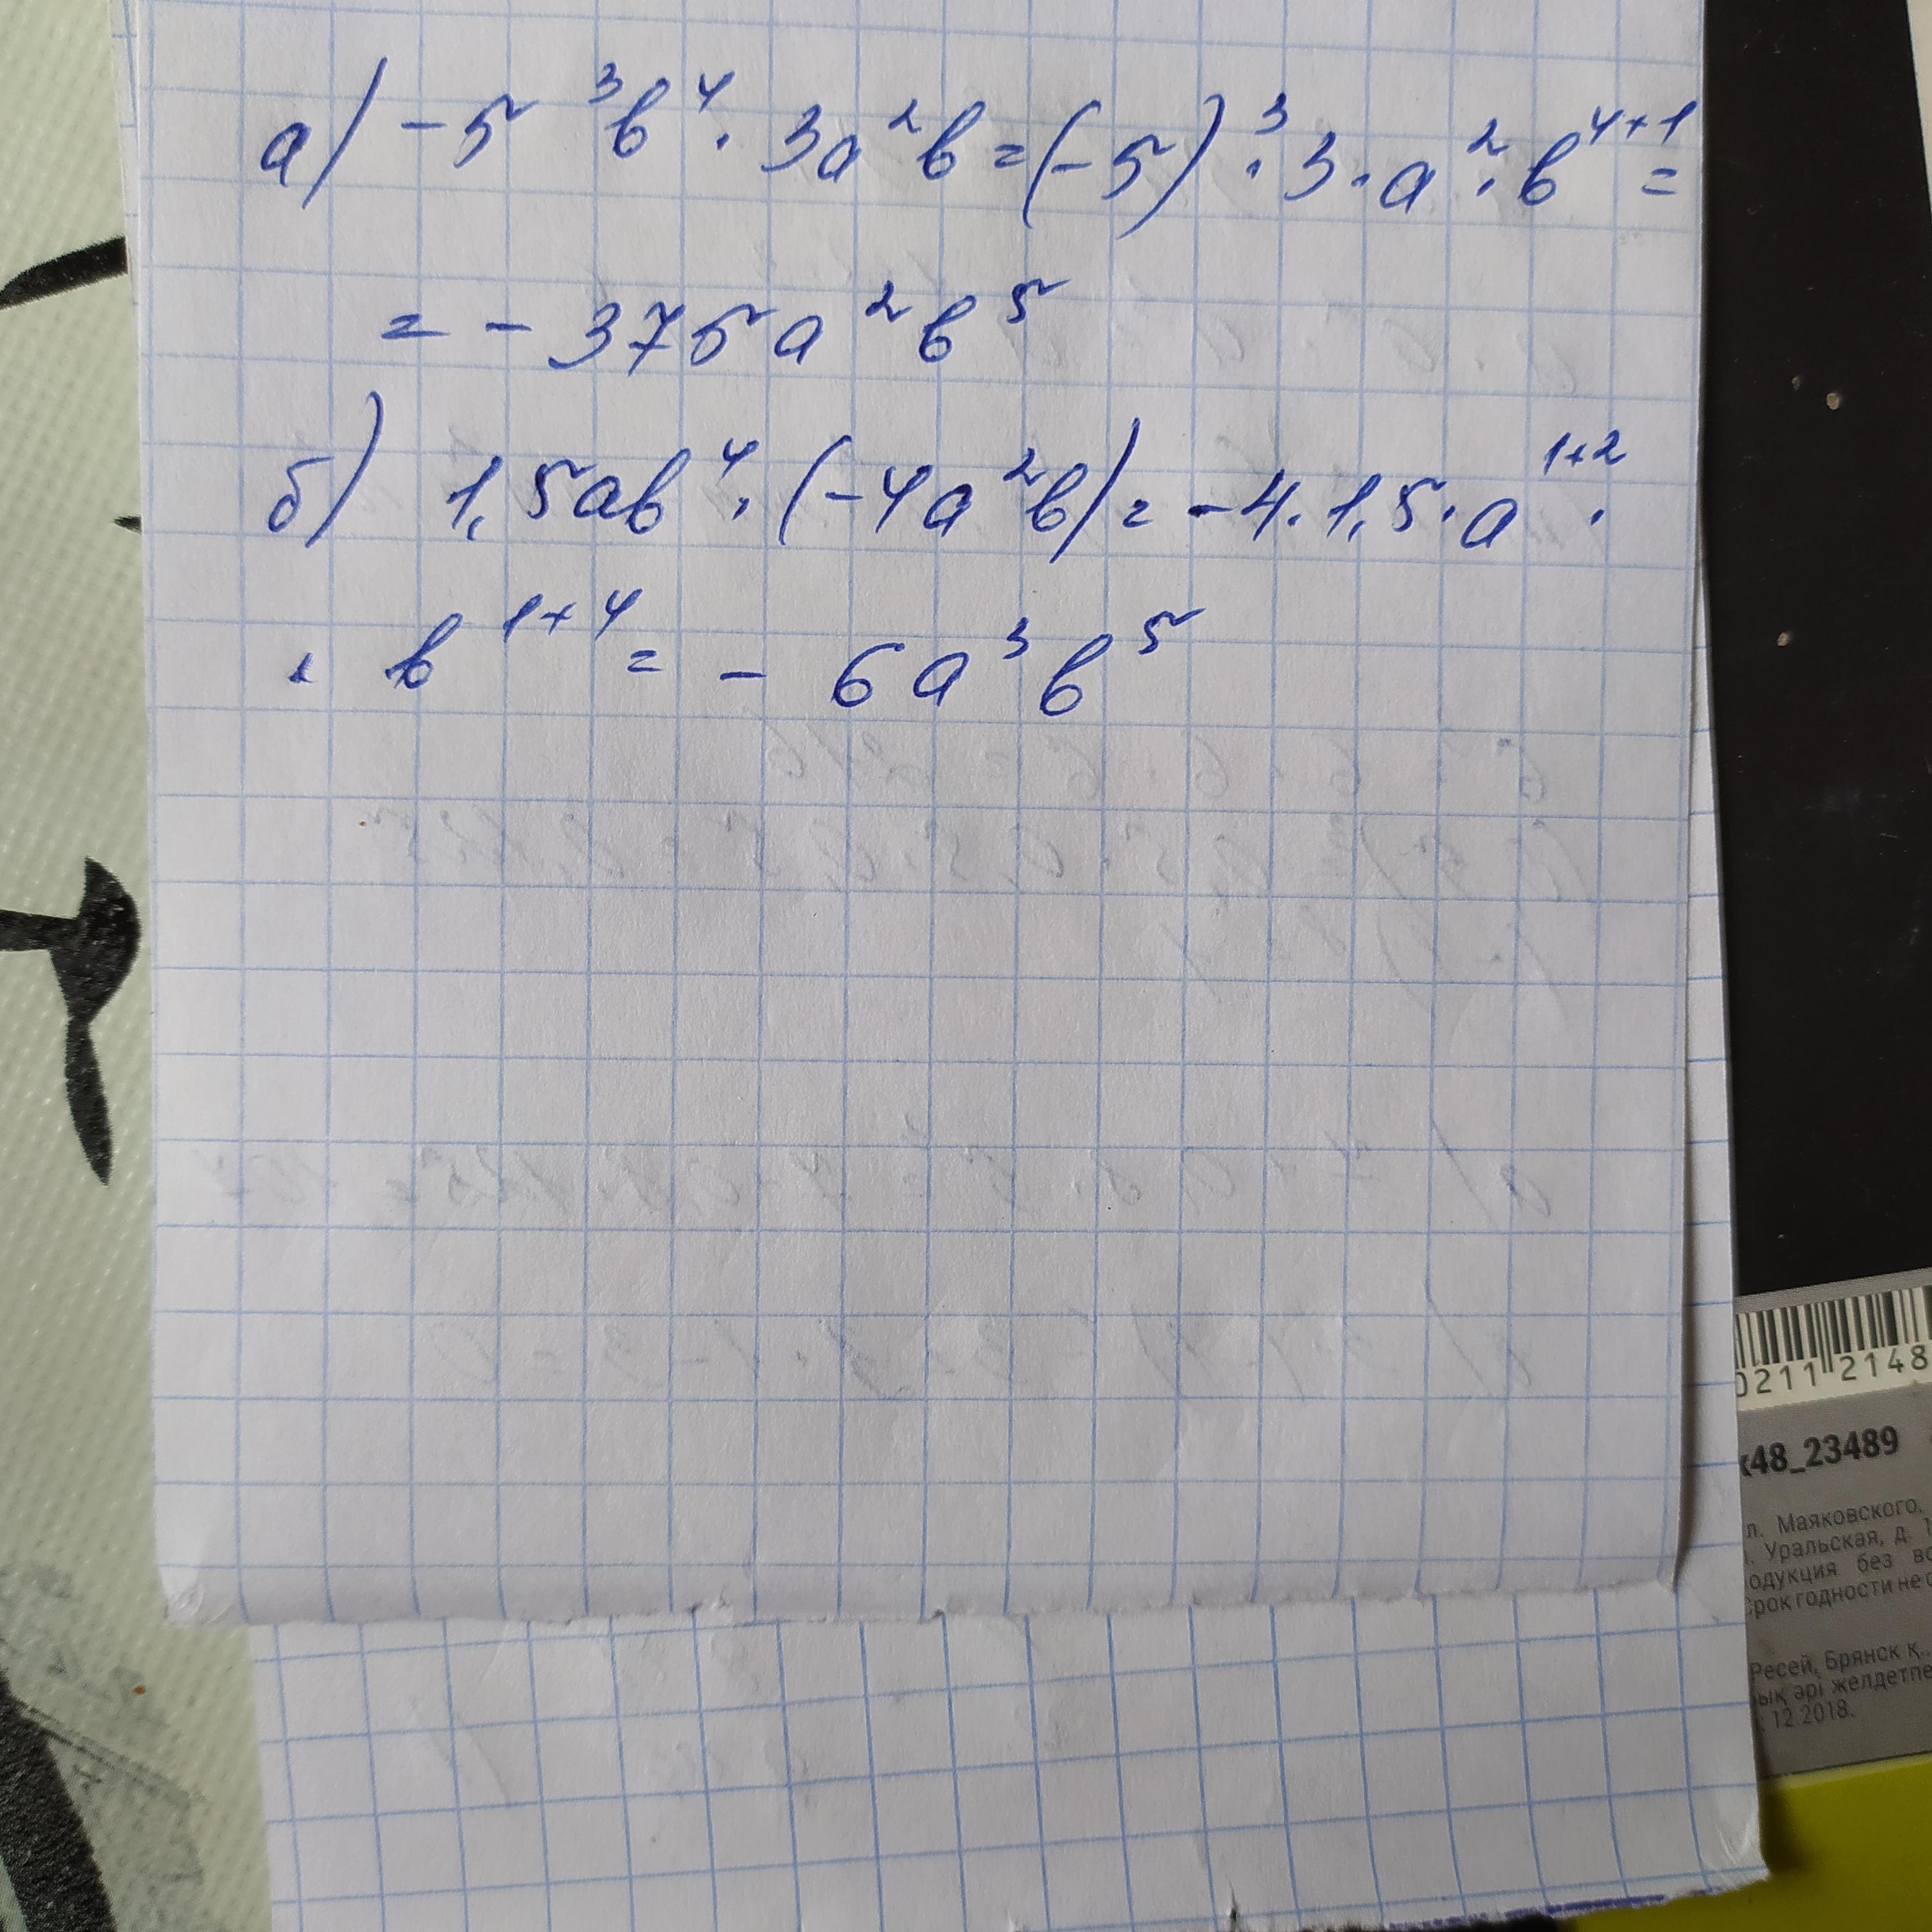 а) -5 ³b⁴ · 3a²b = (-5)³ · 3 · a² · b⁴⁺¹ =
= - 375a²b⁵
б) 1,5ab⁴ · (-4a²b) = -4 · 1,5 · a¹⁺² ·
· b¹⁺⁴ = - 6a³b⁵
0211 2148
48_23489
л. Маяковского,
. Уральская, д. 1
одукция без во
рок годности не о
Ресей, Брянск қ.,
ық әрі желдетпе
12.2018.